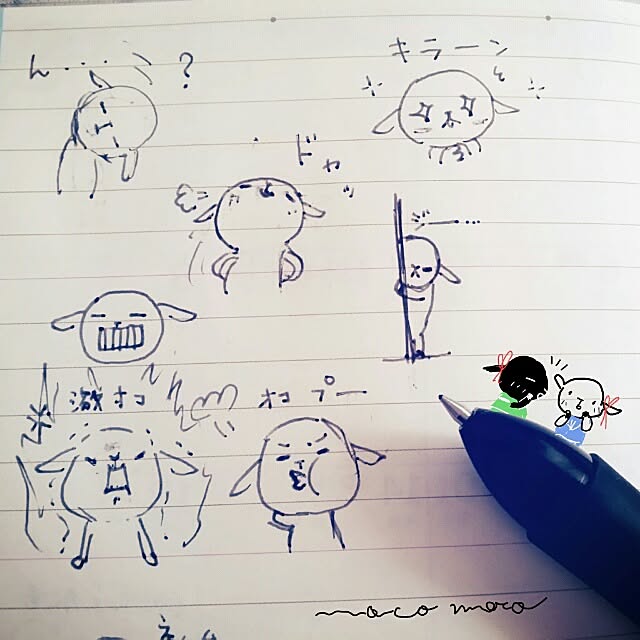 ん…… ?
キラーン
ドヤッ
ジー……
激オコ
オコ プー
moco moco